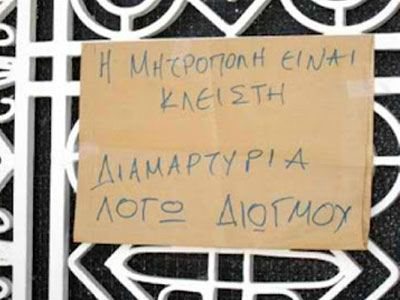 Η ΜΗΤΡΟΠΟΛΗ ΕΙΝΑΙ
ΚΛΕΙΣΤΗ
ΔΙΑΜΑΡΤΥΡΙΑ
ΛΟΓΩ ΔΙΩΓΜΟΥ